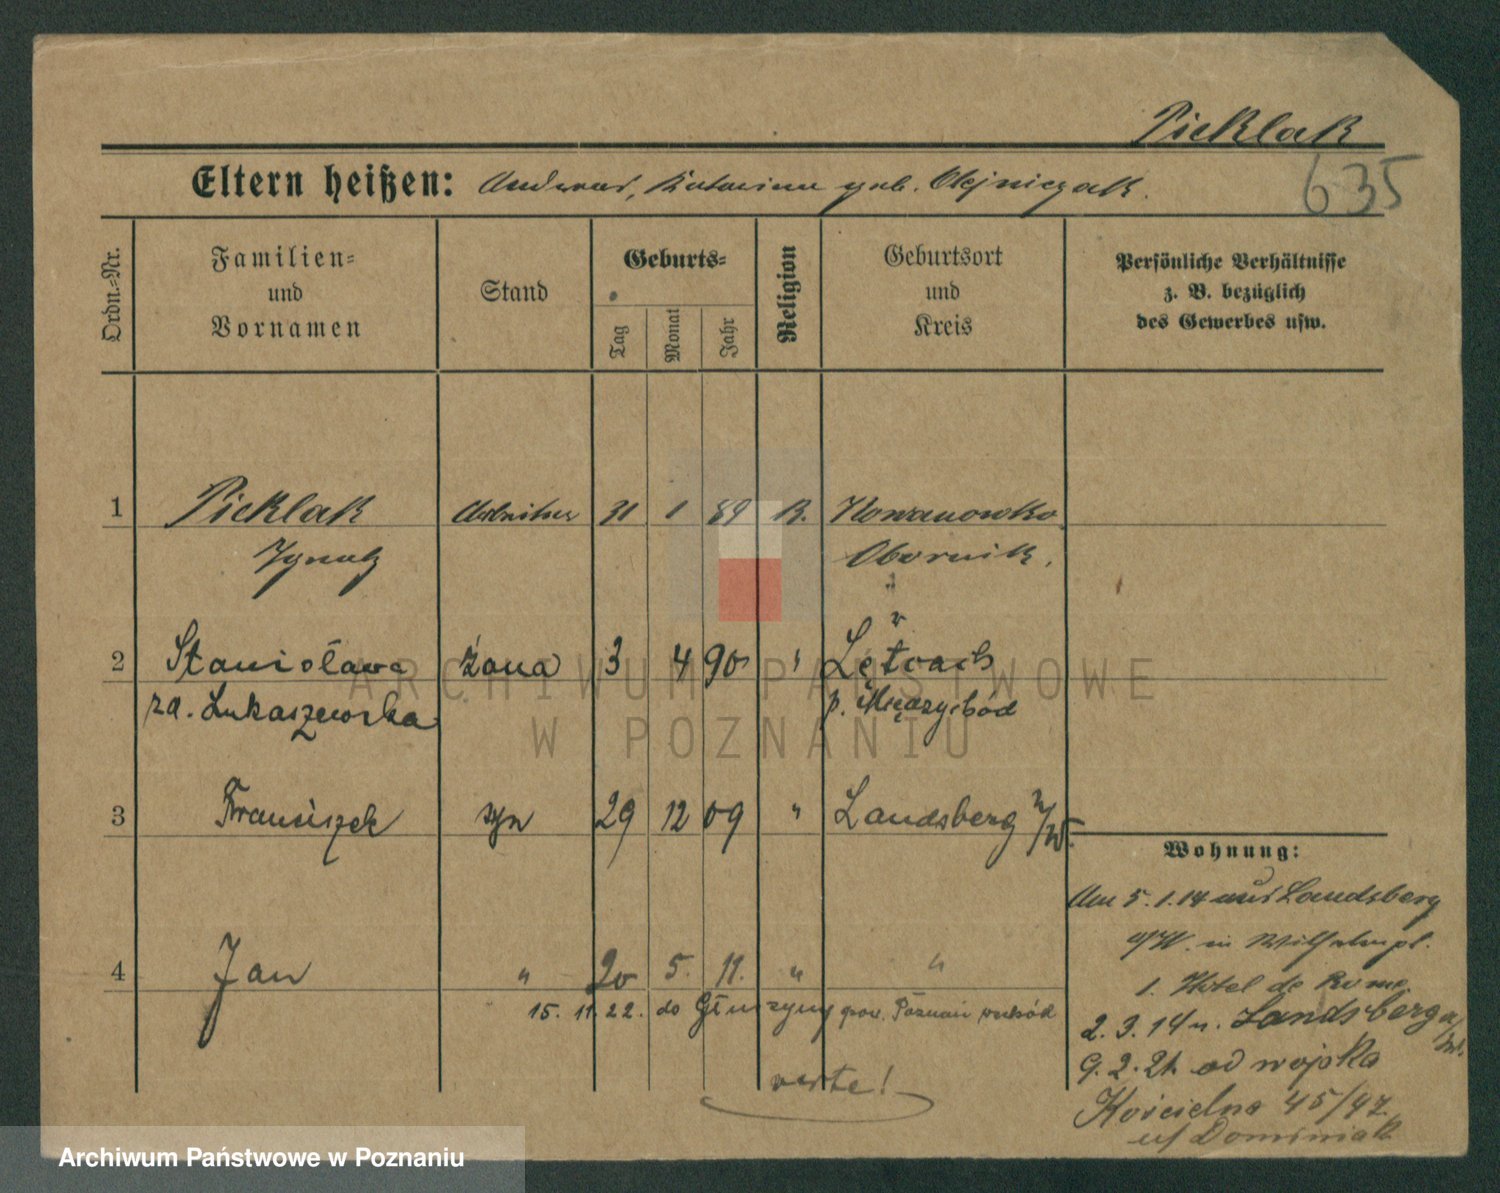 Pieklak
635
Eltern heißen: Andreas, Katarina geb. Olejniczak.
Ordn.-Nr.
Familien-
und
Vornamen
Stand
Geburts-
Tag
Monat
Jahr
Religion
Geburtsort
und
Kreis
Persönliche Verhältnisse
z. B. bezüglich
des Gewerbes usw.
1 Pieklak Arbeiter 31 1 89 K. Kowanowko
Ignatz Obornik.
2 Stanisława żona 3 4 90 " 
za. Łukaszewska p. Międzychód
3 Franciszek syn 29 12 09 " Landsberg a/W.
Wohnung:
Am 5.1.14 aus Landsberg
a/W. in Wilhelmpl.
1. Hotel de Rome.
4 Jan " 20 5. 11. " "
15. 11. 22. do Głuszyny pow. Poznań wschód
2. 3. 14 n. Landsberg a/W.
9. 2. 21. od wojska
Kościelna 45/47
u/ Dominiak
verte!
ARCHIWUM PAŃSTWOWE
W POZNANIU
Archiwum Państwowe w Poznaniu